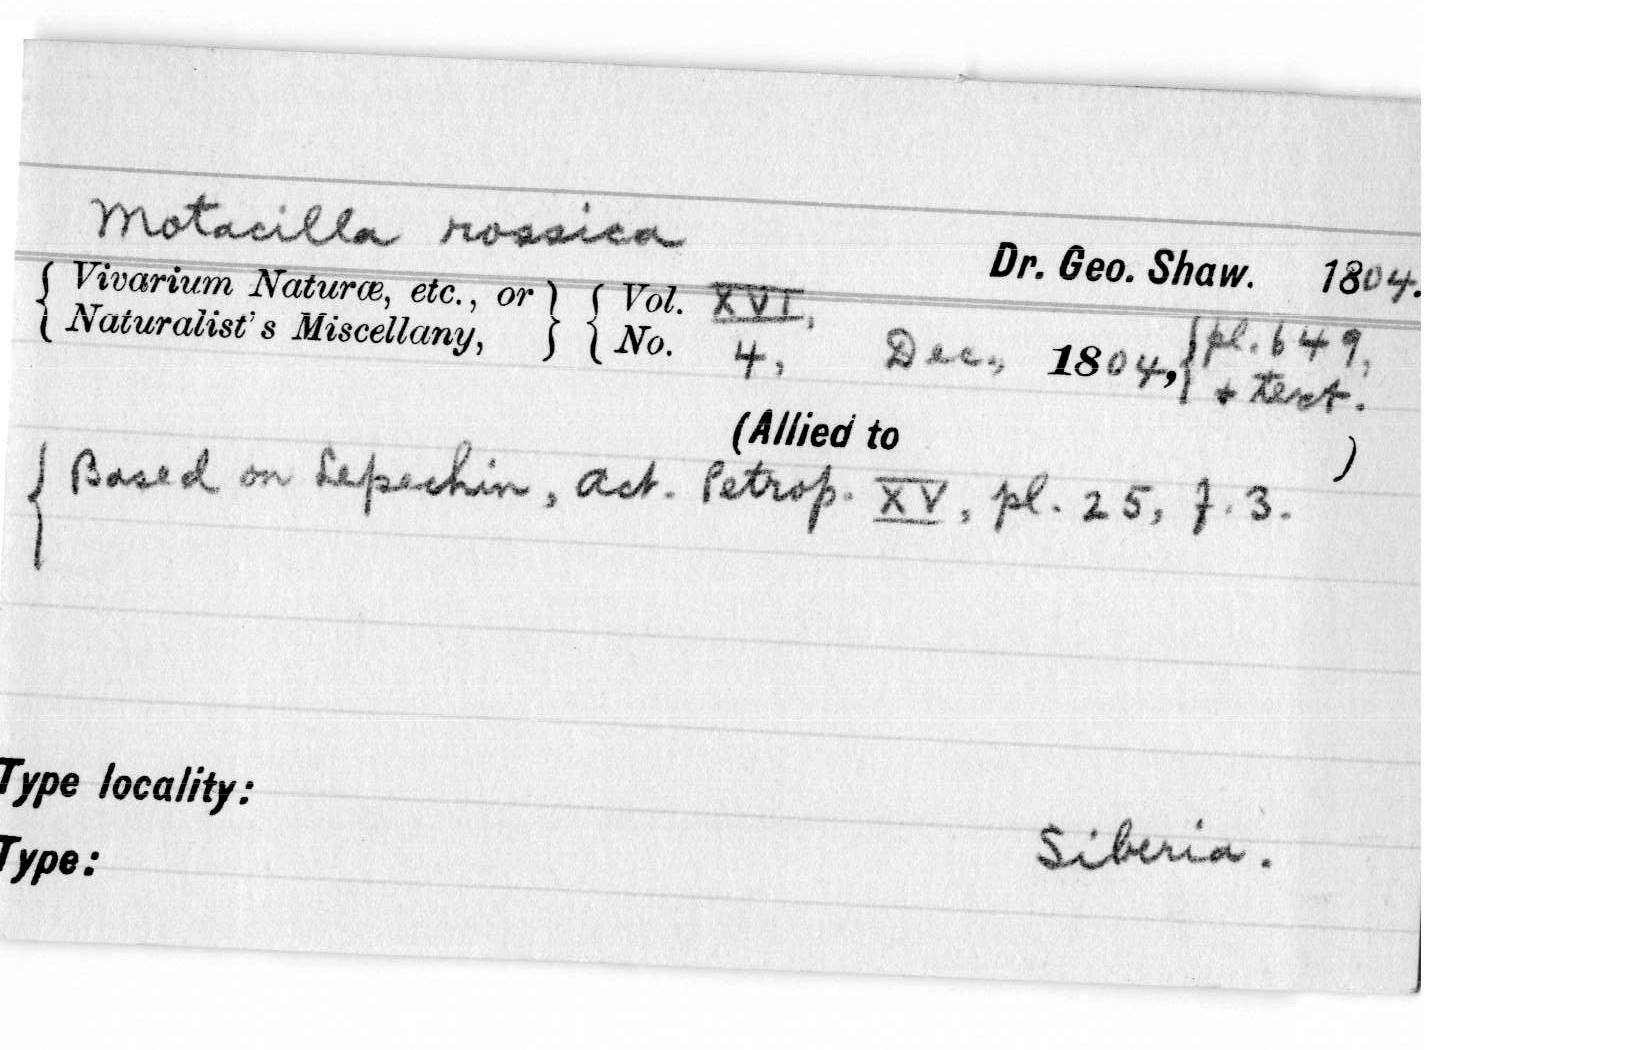 Motacilla rossica
Dr. Geo. Shaw. 1804.
{ Vivarium Naturæ, etc., or } { Vol. XVI,
{ Naturalist's Miscellany, } { No. 4, Dec., 1804, { pl. 649,
+ text.
(Allied to )
{ Based on Lepechin, Act. Petrop. XV, pl. 25, f. 3.
Type locality:
Siberia.
Type: